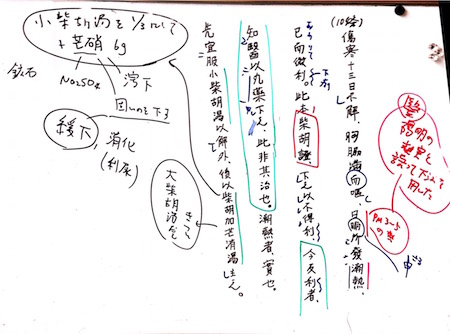 (10条)
傷寒十三日不解、胸脇満而嘔、日晡所發潮熱、
已而微利。此本柴胡證、下之以不得利、今反利者、
知醫以丸薬下之、此非其治也。潮熱者、實也。
先宜服小柴胡湯以解外、後以柴胡加芒消湯主之。
下利
醫
陽明の
誤って下しを
用した
PM3-5
の熱
小柴胡湯を1/3にして
+芒硝 6g
鉱石
Na2SO4
瀉下
固いのを下す
緩下、消化
(利尿)
大柴胡湯